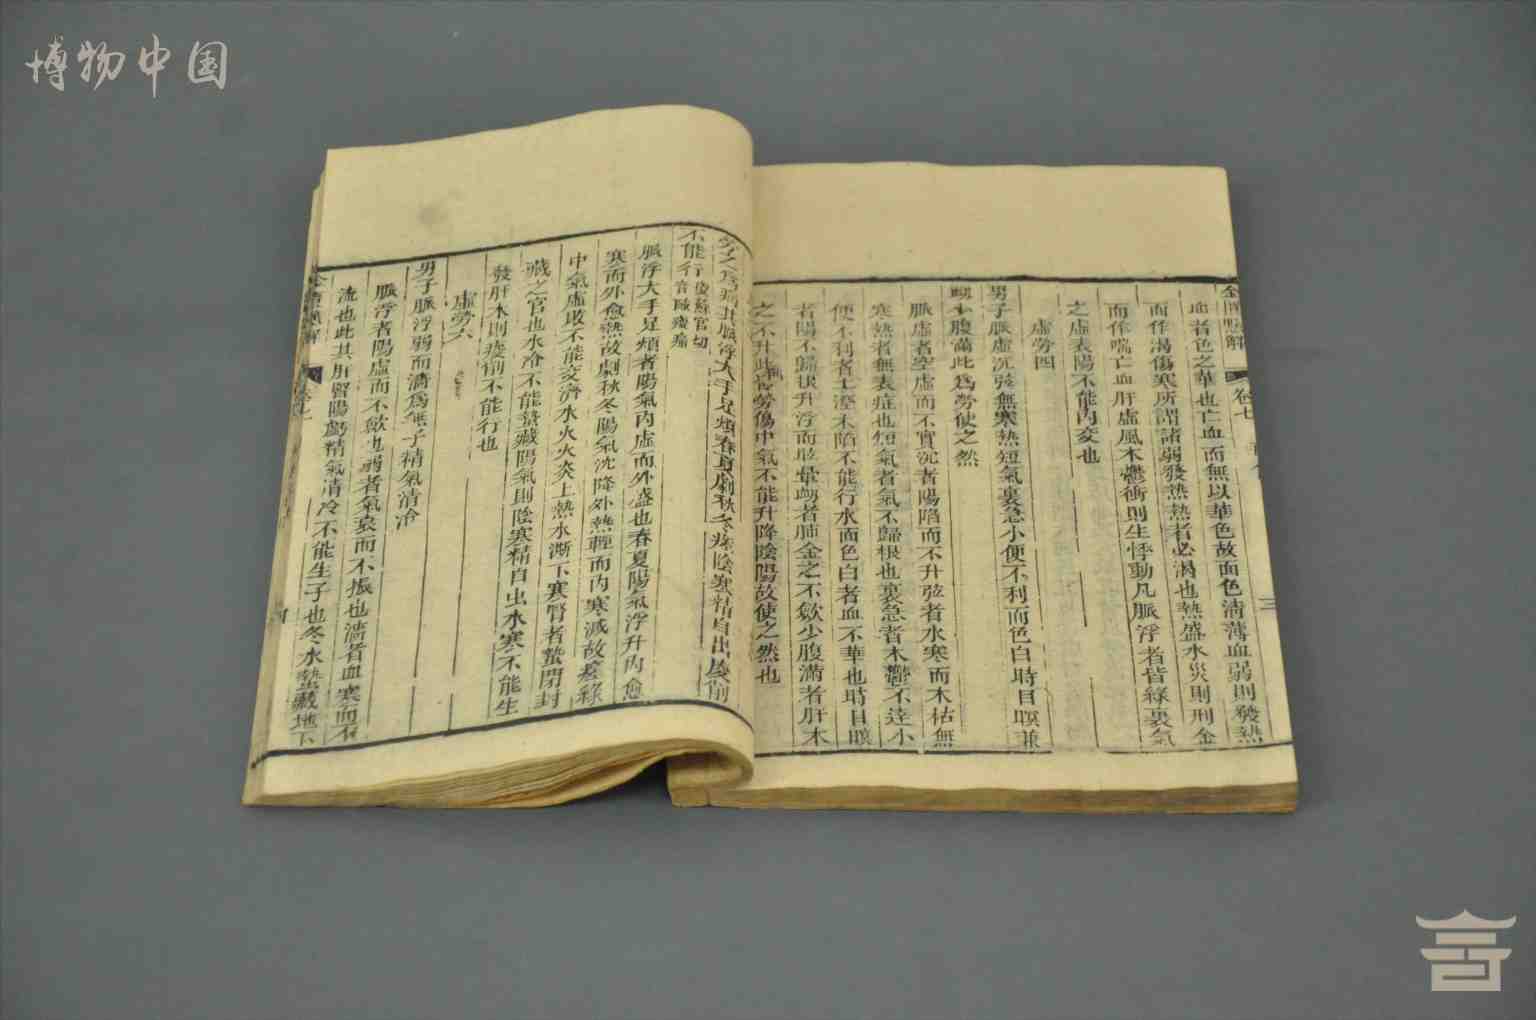 博物中国
金匱懸解 卷七 三
血者色之華也亡血而無以華色故面色清薄血弱則發熱
而作渴傷寒所謂諸弱發熱熱者必渴也熱盛水災則刑金
而作喘亡血肝虛風木鬱衝則生悸動凡脈浮者皆緣裏氣
之虛表陽不能內交也
虛勞四
男子脈虛沉弦無寒熱短氣裏急小便不利而色白時目瞑兼
衂少腹滿此爲勞使之然
脈虛者空虛而不實沉者陽陷而不升弦者水寒而木枯無
寒熱者無表症也短氣者氣不歸根也裏急者木鬱不達小
便不利者土溼木陷不能行水面色白者血不華也時目瞑
者陽不歸根升浮而眩暈衂者肺金之不歛少腹滿者肝木
之不升此皆勞傷中氣不能升降陰陽故使之然也
勞之爲病其脈浮大手足煩春夏劇秋冬瘥陰寒精自出痠削
不能行
脈浮大手足煩者陽氣內虛而外盛也春夏陽氣浮升內愈
寒而外愈熱故劇秋冬陽氣沈降外熱輕而內寒減故瘥緣
中氣虛敗不能交濟水火火炎上熱水澌下寒腎者蟄閉封
藏之官也水冷不能蟄藏陽氣則陰寒精自出水寒不能生
發肝木則痠削不能行也
虛勞六
男子脈浮弱而濇爲無子精氣清冷
脈浮者陽虛而不歛也弱者氣衰而不振也濇者血寒而不
流也此其肝腎陽虧精氣清冷不能生子也冬水蟄藏地下